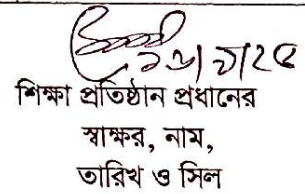 শিক্ষা প্রতিষ্ঠান প্রধানের
স্বাক্ষর, নাম,
তারিখ ও সিল